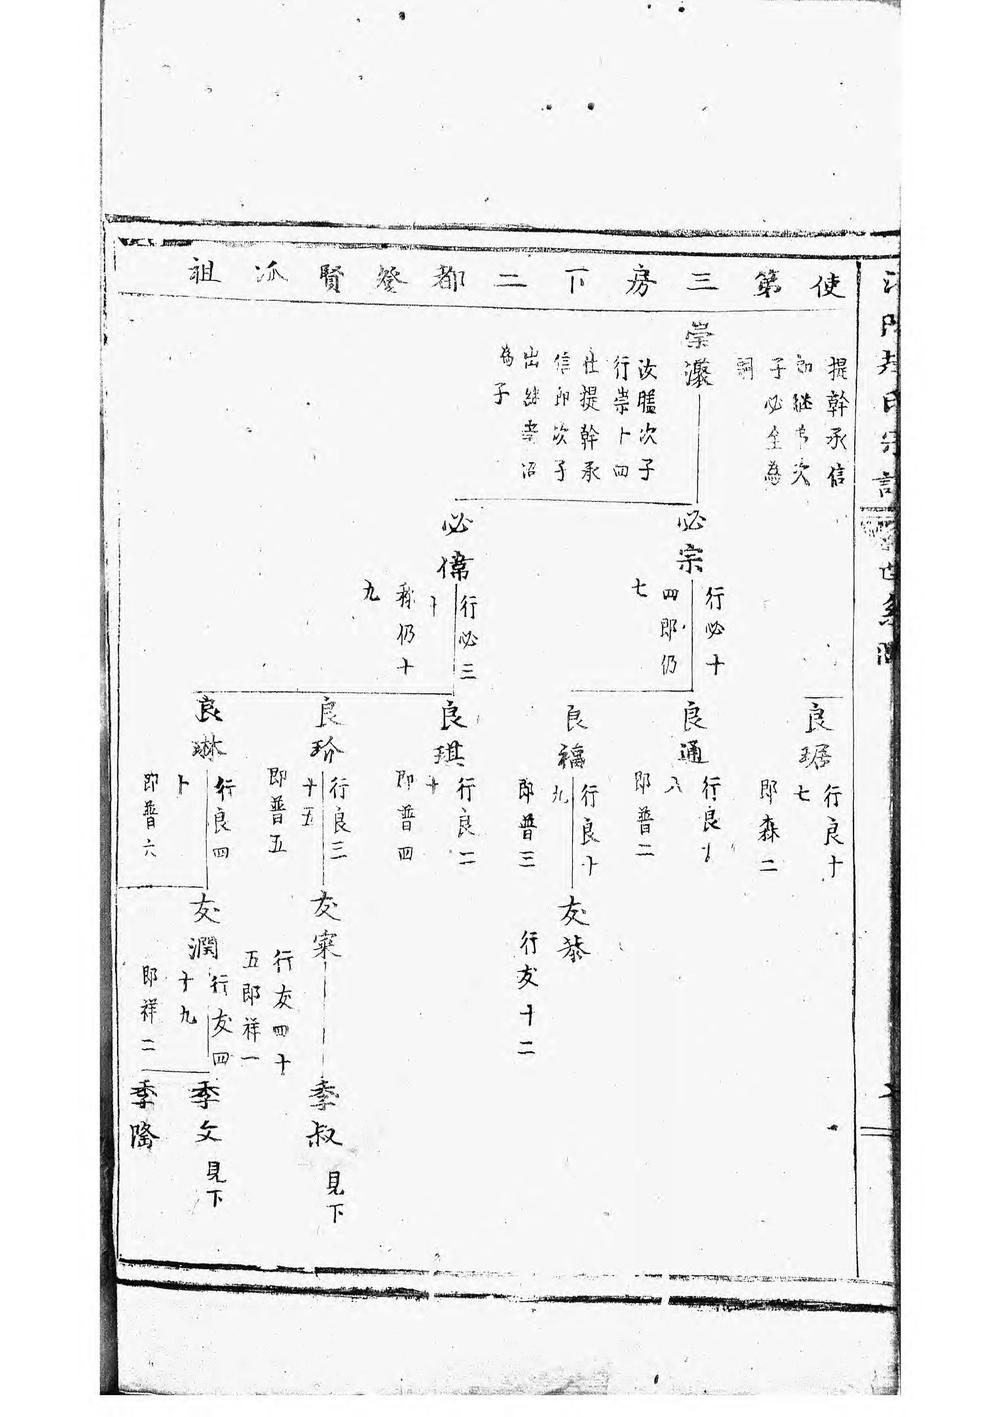 使第三房下二都登賢派祖
提幹承信
郎継韦次
子必全為
嗣
崇瀠
汝䁠次子
行崇卜四
仕提幹承
信郎次子
出継崇沼
為子
必宗
行必十
四郎仍
七
必偉
行必三
十
称仍十
九
良琚
行良十
七
郎森二
良通
行良十
八
即普二
良福
行良十
九
郎普三
良琪
行良二
十
即普四
良玠
行良三
十五
即普五
良琳
行良四
十
即普六
友恭
行友十二
友寀
行友四十
五郎祥一
友潤
行友四
十九
郎祥二
季叔
見下
季文
見下
季隆